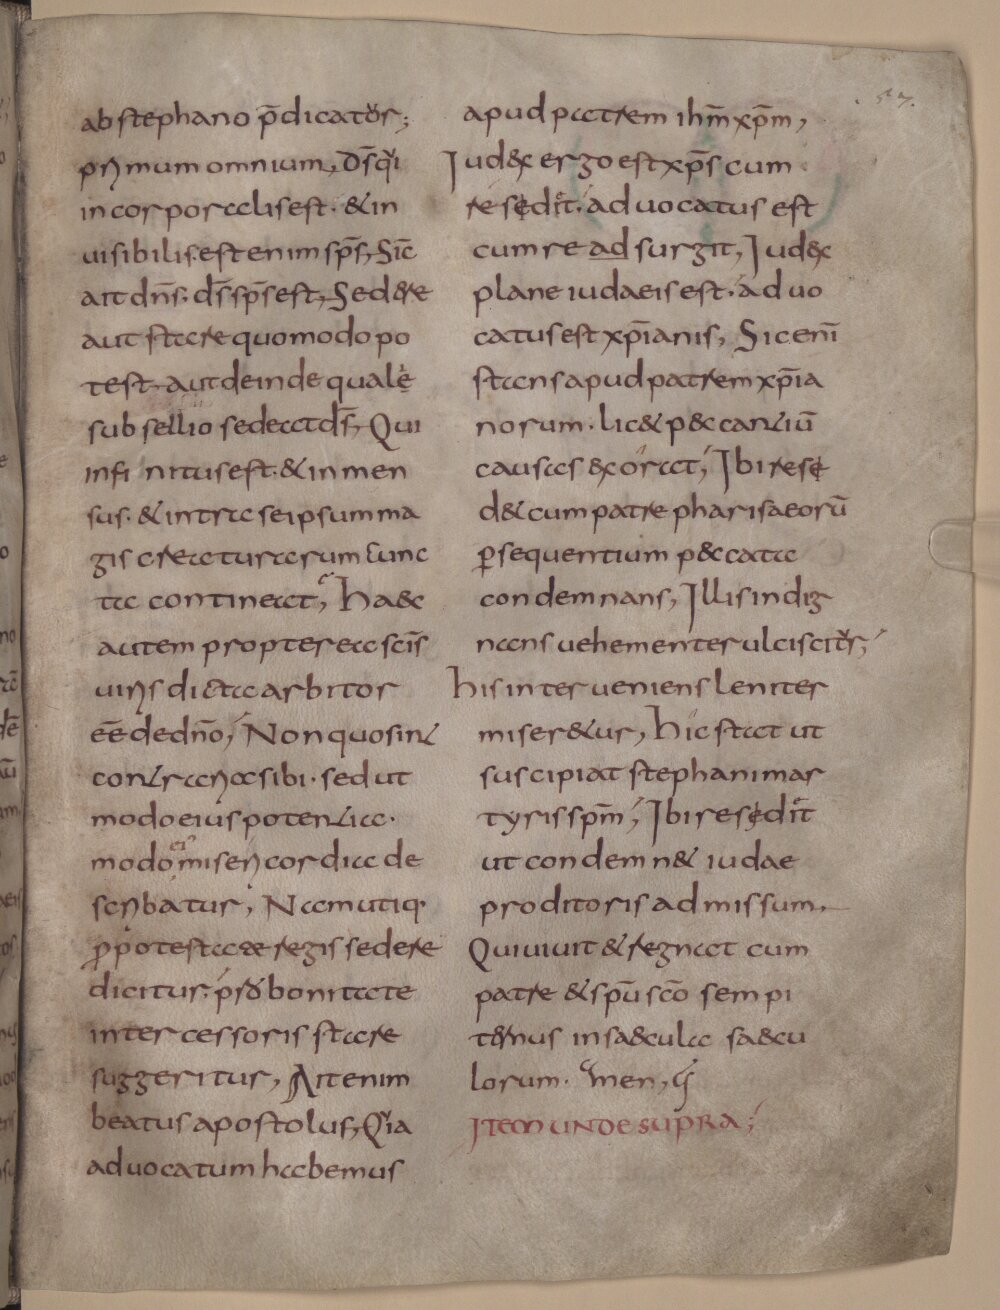 ab stephano p̄dicator̆;
primum omnium, d̄s qui
incorporalis est. & in
uisibilis. est enim sp̄s, Sic̄
ait dn̄s. d̄s sp̄s est, Sedere
aut stare quomodo po
test. aut deinde quale
subsellio sedeat d̄s, Qui
infinitus est. & inmen
sus. & intra seipsum ma
gis creaturarum cunc
ta contineat, Haec
autem propterea sc̄is
uiris dicta arbitror
eē de dn̄o, Non quo sint
contraria sibi. sed ut
modo eius potentia.
modo ei' misericordia de
scribatur, Nam utiq·
ꝓ potestate regis sedere
dicitur. pro bonitate
intercessoris stare
suggeritur, Ait enim
beatus apostolus, Quia
aduocatum habemus
apud patrem ihm̄ xp̄m,
Iudex ergo est xp̄s cum
resedit. aduocatus est
cum re adsurgit, Iudex
plane iudaeis est. aduo
catus est xp̄ianis, Sic enī
stans apud patrem xp̄ia
norum. lic& peccantiū
causas exorat, Ibi rese
d& cum patre pharisaeorū
ꝑsequentium peccata
condemnans, Illis indig
nans uehementer ulciscitur,
his interueniens leniter
miser&ur, Hic stat ut
suscipiat stephani mar
tyris sp̄m, Ibi resedit
ut condemn& iudae
proditoris admissum.
Qui uiuit & regnat cum
patre & sp̄u sc̄o sempi
ternus in saecula saecu
lorum. amen,
ITEM UNDE SUPRA;